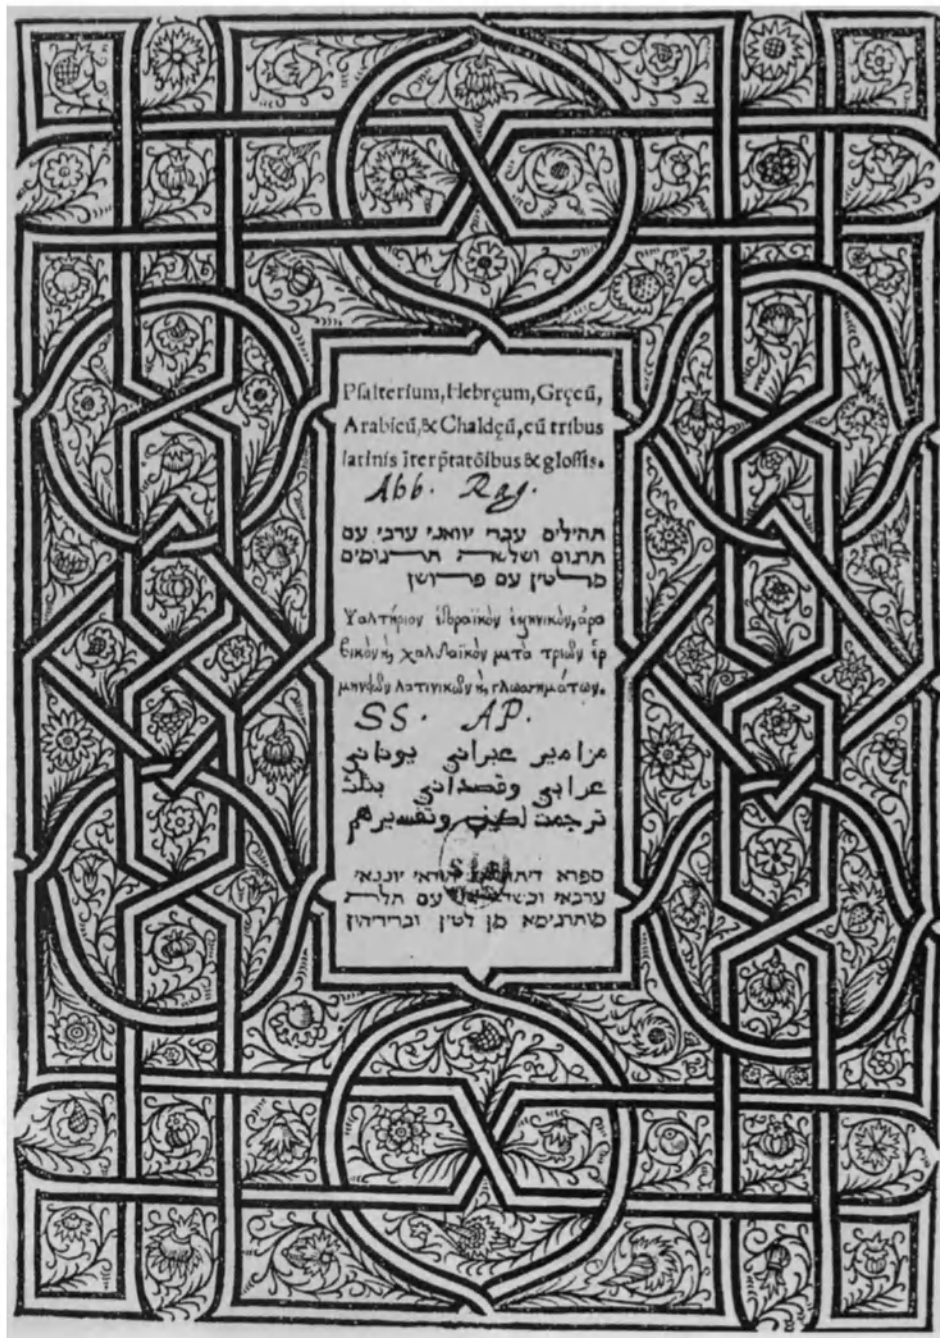 Psalterium, Hebręum, Gręcū,
Arabicū, & Chaldęū, cū tribus
latinis īterp̄tatōibus & glossis.
Abb. Rag.
תהילים עברי יוואני ערבי עם
תרגום ושלשת תרגומים
מלטין עם פרושן
Ψαλτήριον ἑβραϊκὸν ἑλληνικὸν, ἀρα
βικὸν ϗ, χαλδαϊκὸν μετὰ τριῶν ἑρ
μηνειῶν λατινικῶν ϗ, γλωσσημάτων.
SS. AP.
مزامير عبراني يوناني
عرابي وقصداني بثلث
ترجمت لطيني وتفسيرهم
ספרא יוננאי
ערבאי עם תלת
מותרגימא מן לטין